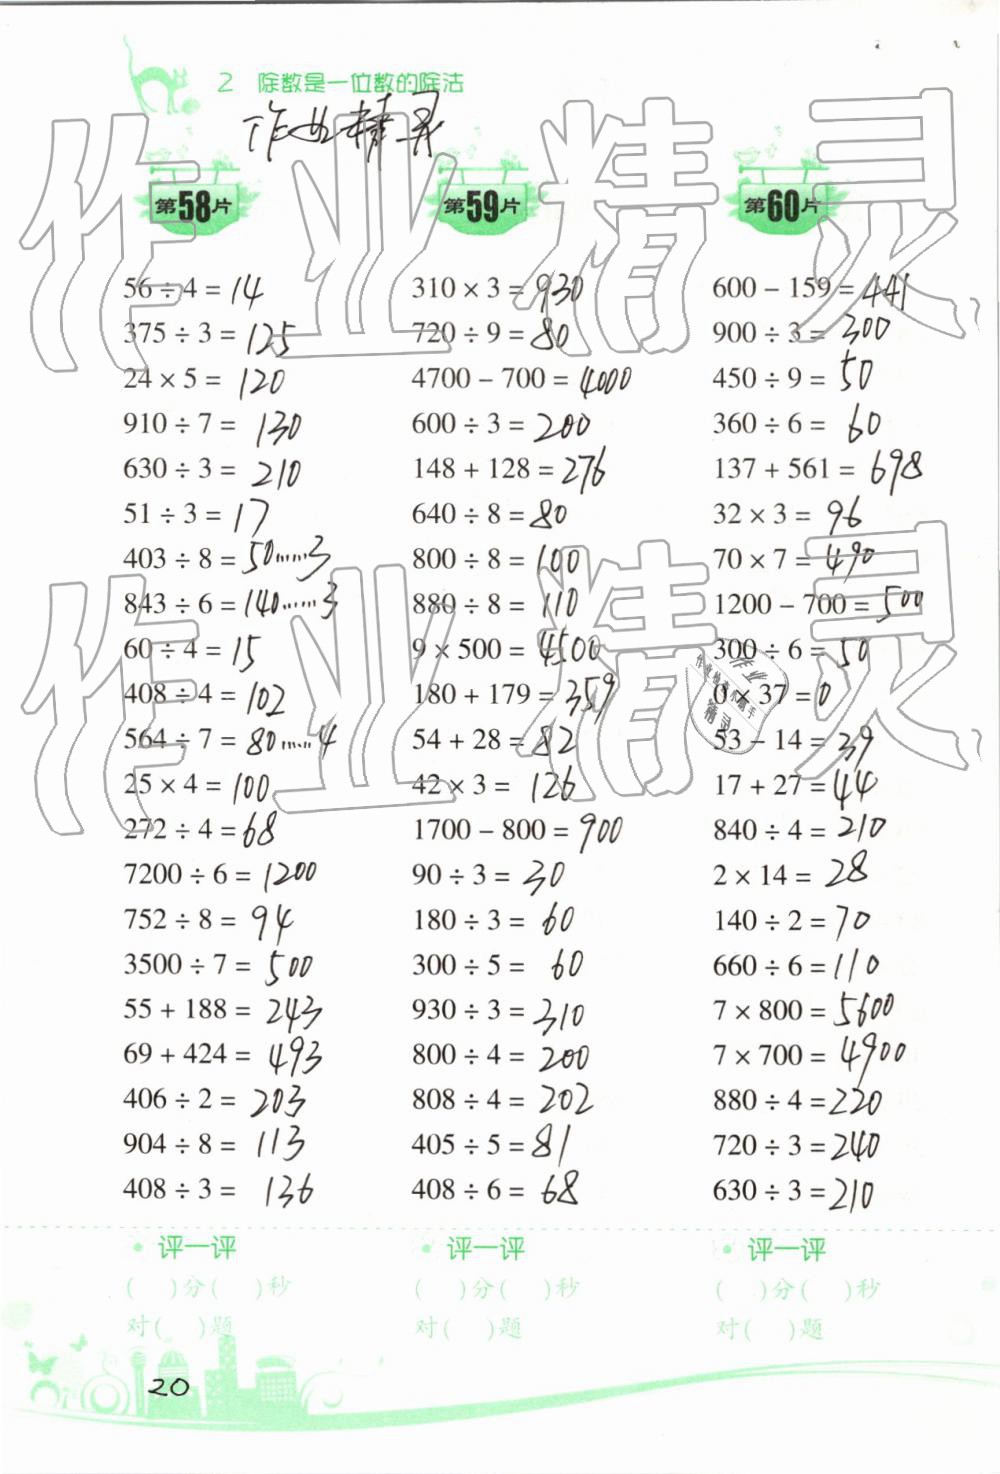 2 除数是一位数的除法
作业精灵
第58片
56 ÷ 4 = 14
375 ÷ 3 = 125
24 × 5 = 120
910 ÷ 7 = 130
630 ÷ 3 = 210
51 ÷ 3 = 17
403 ÷ 8 = 50……3
843 ÷ 6 = 140……3
60 ÷ 4 = 15
408 ÷ 4 = 102
564 ÷ 7 = 80……4
25 × 4 = 100
272 ÷ 4 = 68
7200 ÷ 6 = 1200
752 ÷ 8 = 94
3500 ÷ 7 = 500
55 + 188 = 243
69 + 424 = 493
406 ÷ 2 = 203
904 ÷ 8 = 113
408 ÷ 3 = 136
评一评
( )分( )秒
对( )题
第59片
310 × 3 = 930
720 ÷ 9 = 80
4700 − 700 = 4000
600 ÷ 3 = 200
148 + 128 = 276
640 ÷ 8 = 80
800 ÷ 8 = 100
880 ÷ 8 = 110
9 × 500 = 4500
180 + 179 = 359
54 + 28 = 82
42 × 3 = 126
1700 − 800 = 900
90 ÷ 3 = 30
180 ÷ 3 = 60
300 ÷ 5 = 60
930 ÷ 3 = 310
800 ÷ 4 = 200
808 ÷ 4 = 202
405 ÷ 5 = 81
408 ÷ 6 = 68
评一评
( )分( )秒
对( )题
第60片
600 − 159 = 441
900 ÷ 3 = 300
450 ÷ 9 = 50
360 ÷ 6 = 60
137 + 561 = 698
32 × 3 = 96
70 × 7 = 490
1200 − 700 = 500
300 ÷ 6 = 50
0 × 37 = 0
53 − 14 = 39
17 + 27 = 44
840 ÷ 4 = 210
2 × 14 = 28
140 ÷ 2 = 70
660 ÷ 6 = 110
7 × 800 = 5600
7 × 700 = 4900
880 ÷ 4 = 220
720 ÷ 3 = 240
630 ÷ 3 = 210
评一评
( )分( )秒
对( )题
20
作业精灵
作业精灵
作业
精灵